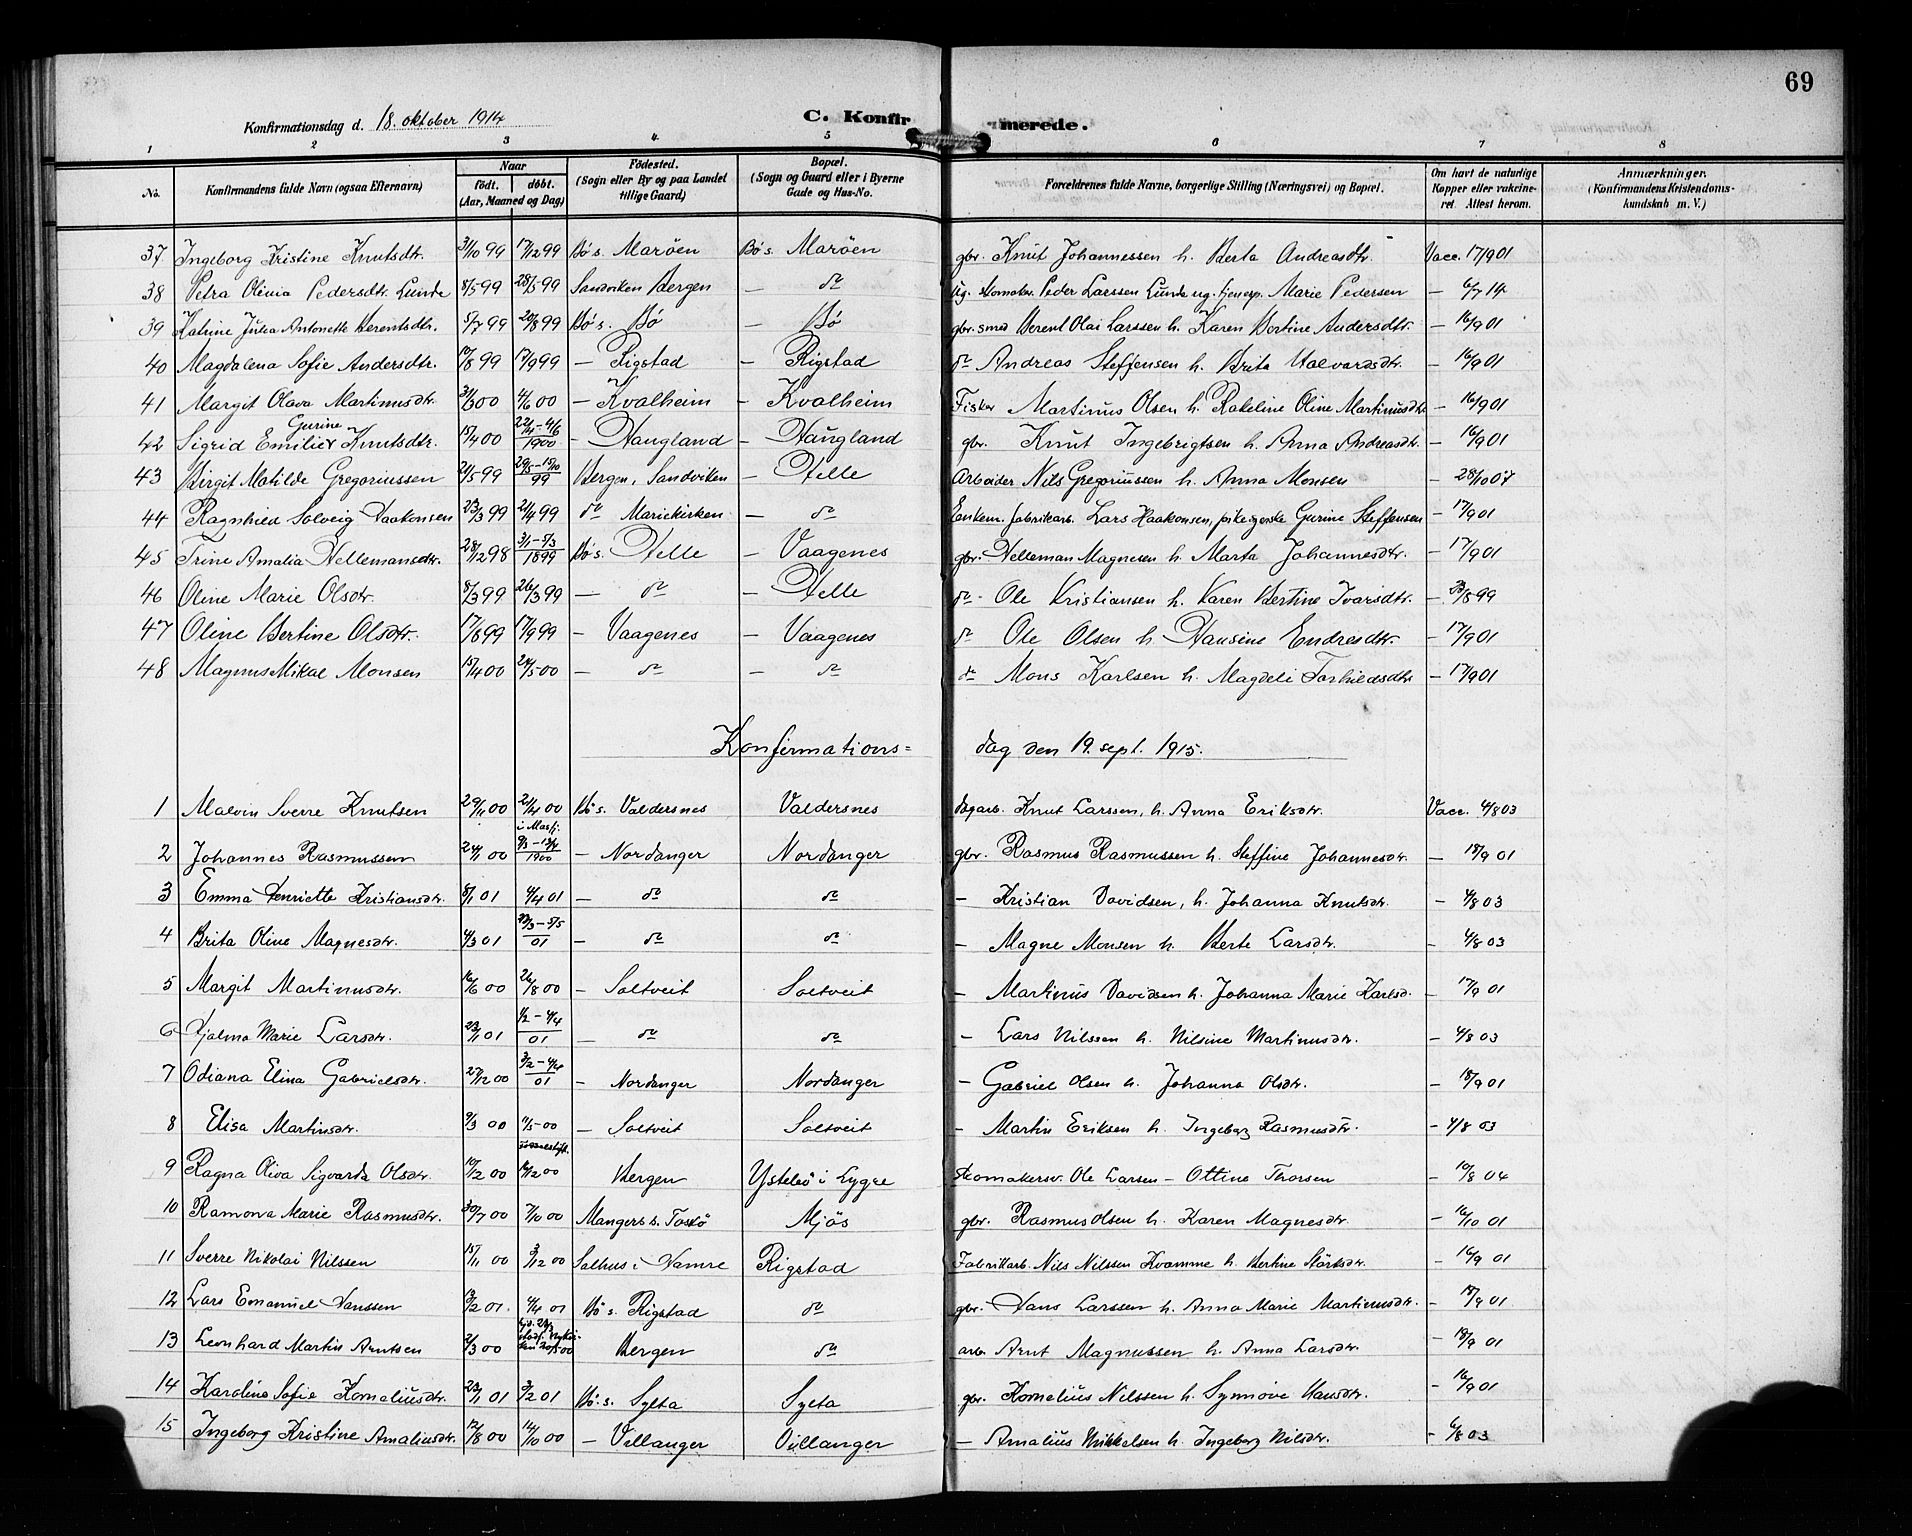 69
Konfirmationsdag d. 18. oktober 1914 C. Konfirmerede.
1 2 3 4 5 6 7 8
No. Konfirmandens fulde Navn (ogsaa Efternavn) Naar født. døbt. (Aar, Maaned og Dag) Fødested. (Sogn eller By og paa Landet tillige Gaard) Bopæl. (Sogn og Gaard eller i Byerne Gade og Hus-No. Forældrenes fulde Navne, borgerlige Stilling (Næringsvei) og Bopæl. Om havt de naturlige Kopper eller vakcineret. Attest herom. Anmærkninger. (Konfirmandens Kristendomskundskab m. V.)
37 Ingeborg Kristine Knutsdtr. 31/10 99 17/12 99 Bø s. Marøen Bø s. Marøen gbr. Knut Johannessen h. Berta Andreasdtr. Vacc. 17/9 01
38 Petra Olivia Pedersdtr. Lunde 8/5 99 28/5 99 Sandviken Bergen — do ug. skomaker Peder Larssen Lunde ug. tjenesp. Marie Pedersen — 6/7 14
39 Katrine Julia Antonette Berentsdtr. 5/7 99 20/8 99 Bø s. Bø — Bø gbr. smed Berent Olai Larssen h. Karen Bertine Andersdtr. — 16/9 01
40 Magdalena Sofie Andersdtr. 10/8 99 17/9 99 — Rigstad — Rigstad do Andreas Steffensen h. Brita Halvardsdtr. — 16/9 01
41 Margit Olava Martinusdtr. 31/3 00 4/6 00 — Kvalheim — Kvalheim Fisker Martinus Olsen h. Rakeline Oline Martinusdtr. — 16/9 01
42 Sigrid Emilie Gurine Knutsdtr. 15/4 00 22/4 – 4/6 1900 — Haugland — Haugland gbr. Knut Ingebrigtsen h. Anna Andreasdtr. — 16/9 01
43 Birgit Matilde Gregoriussen 21/5 99 29/5 – 15/10 99 Bergen, Sandviken — Helle Arbeider Nils Gregoriussen h. Anna Monsen — 28/10 07
44 Ragnhild Solveig Haakonsen 23/3 99 21/4 99 do Mariekirken — do Enkem. fabrikarb. Lars Haakonsen, pike Gurine Steffensen — 17/9 01
45 Trine Amalia Hellemansdtr. 28/12 98 3/1 – 5/3 1899 Bø s. Helle — Vaagenes gbr. Helleman Magnesen h. Marta Johannesdtr. — 17/9 01
46 Oline Marie Olsdtr. 8/3 99 26/3 99 — do — Helle do Ole Kristiansen h. Karen Bertine Ivarsdtr. — 23/8 99
47 Oline Bertine Olsdtr. 17/8 99 17/9 99 — Vaagenes — Vaagenes do Ole Olsen h. Hansine Endresdtr. — 17/9 01
48 Magnus Mikal Monsen 15/4 00 24/5 00 — do — do do Mons Karlsen h. Magdeli Torkildsdtr. — 17/9 01
Konfirmations= dag den 19. sept. 1915.
1 Malvin Sverre Knutsen 29/11 00 2/4 00 Bø s. Valdersnes Valdersnes dagarb. Knut Larssen, h. Anna Eriksdtr. Vacc. 4/8 03
2 Johannes Rasmussen 24/1 00 1900 — Nordanger Nordanger gbr. Rasmus Rasmussen h. Steffine Johannesdtr. — 18/9 01
3 Emma Henriette Kristiansdtr. 8/1 01 4/4 01 — do do — Kristian Davidsen, h. Johanna Knutsdtr. — 4/8 03
4 Brita Oline Magnesdtr. 4/3 01 – 5/5 01 — do do — Magne Monsen h. Berte Larsdtr. — 4/8 03
5 Margit Martinusdtr. 16/6 00 26/8 00 — Soltveit Soltveit — Martinus Davidsen h. Johanna Marie Karlsd. — 17/9 01
6 Hjalma Marie Larsdtr. 23/1 01 1/2 – 4/4 01 — do do — Lars Nilssen h. Nilsine Martinusdtr. — 4/8 03
7 Odiana Elina Gabrielsdtr. 27/12 00 3/2 – 4/4 01 — Nordanger Nordanger — Gabriel Olsen h. Johanna Olsdtr. — 18/9 01
8 Elisa Martinsdtr. 9/3 00 11/5 00 — Soltveit Soltveit — Martin Eriksen h. Ingeborg Rasmusdtr. — 4/8 03
9 Ragna Oliva Sigvarda Olsdtr. 10/12 00 16/12 00 Bergen Ystebø i Lygre skomakersv. Ole Larsen – Ottine Thorsen — 10/8 04
10 Ramona Marie Rasmusdtr. 30/7 00 7/10 00 Mangers s. Toskø Mjøs gbr. Rasmus Olsen h. Karen Magnesdtr. — 16/10 01
11 Sverre Nikolai Nilssen 15/11 00 3/12 00 Salhus i Hamre Rigstad Fabrikarb. Nils Nilssen Kvamme h. Bertine — 16/9 01
12 Lars Emanuel Hanssen 13/2 01. 4/4 01 Bø s. Rigstad do gbr. Hans Larssen h. Anna Marie Martinusdtr. — 18/9 01
13 Leonhard Martin Arntsen 2/3 00 Bergen do arb. Arnt Magnussen h. Anna Larsdtr. — 18/9 01
14 Karoline Sofie Korneliusdtr. 23/1 01 3/2 01 Bø. s. Sylta Sylta gbr. Kornelius Nilssen h. Synnøve Hansdtr. — 16/9 01
15 Ingeborg Kristine Amaliusdtr. 12/8 00 14/10 00 — Villanger Villanger — Amalius Mikkelsen h. Ingeborg Nilsdtr. — 6/8 03